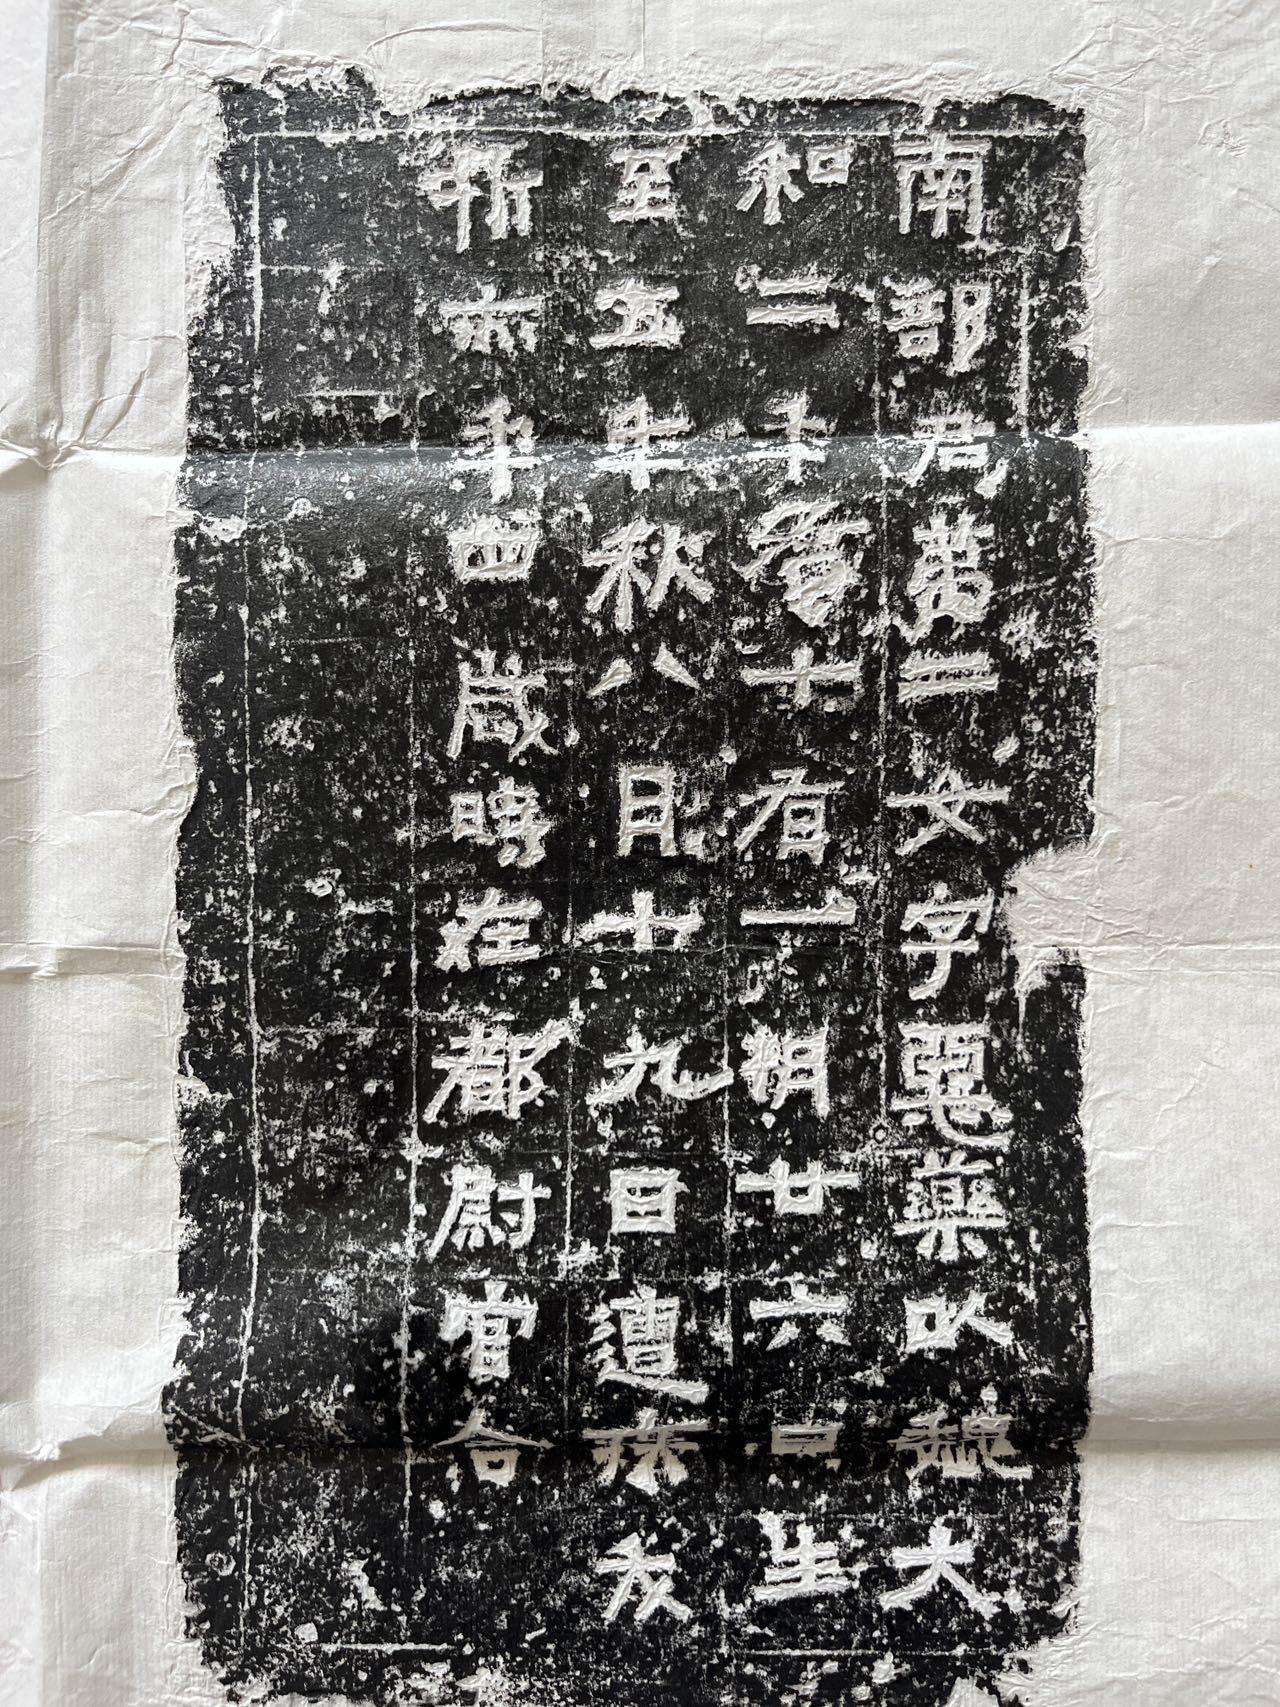 南部第二女字惡藥以魏大
和二十十有一廿六日生
至五年秋八月十九日遭疾
年四歲時在都尉官舍